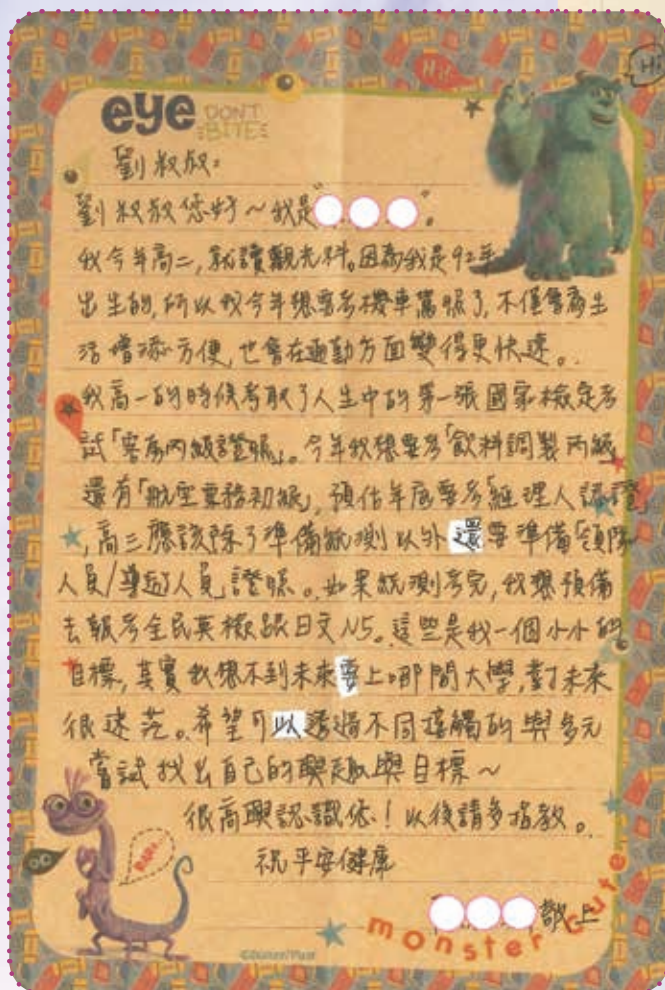 Hi!
Hi
eye DON'T BITE
劉叔叔:
劉叔叔您好～我是"
我今年高二,就讀觀光科。因為我是92年
出生的,所以我今年想要考機車駕照了,不僅會為生
活增添方便,也會在通勤方面變得更快速。
我高一的時候考取了人生中的第一張國家檢定考
試「客房丙級證照」。今年我想要考「飲料調製丙級
還有「航空業務初級」,預估年底要考「經理人認證
,高三應該除了準備統測以外還要準備「領隊
人員/導遊人員」證照。如果統測考完,我想預備
去報考全民英檢跟日文N5。這些是我一個小小的
目標,其實我想不到未來要上哪間大學,對未來
很迷茫。希望可以透過不同接觸的與多元
嘗試找出自己的興趣與目標～
很高興認識您!以後請多指教。
祝平安健康
敬上
monster cute
©Disney/Pixar